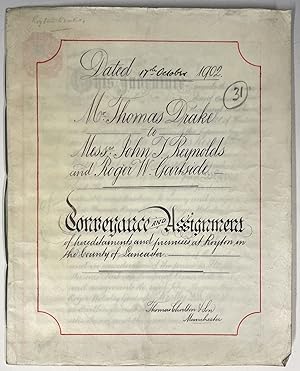 Dated 17th October 1902.
31
Mr. Thomas Drake
to
Messrs. John T. Reynolds
and Roger W. Gartside
Conveyance AND Assignment
of hereditaments and premises at Royton in
the County of Lancaster.
Thomas Chorlton & Son
Manchester